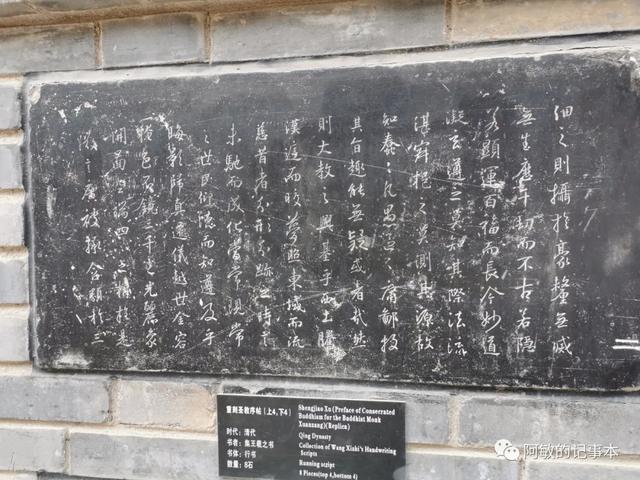 細之則攝於豪釐無滅
無生歷千劫而不古若隱
若顯運百福而長今妙道
凝玄遵之莫知其際法流
湛寂挹之莫測其源故
知蠢々凡愚區々庸鄙投
其旨趣能無疑或者哉然
則大教之興基乎西土騰
漢庭而皎夢照東域而流
慈昔者分形分跡之時言
未馳而成化當常現常
之世民仰德而知遵及乎
晦影歸真遷儀越世金容
掩色不鏡三千之光麗象
開圖空端四八之相於是
微言廣被拯含類於三
重刻圣教序帖（上4,下4）
时代：清代
书者：集王羲之书
书体：行书
数量：8石
Shengjiao Xu (Preface of Consecrated
Buddhism for the Buddhist Monk
Xuanzang)(Replica)
Qing Dynasty
Collection of Wang Xizhi's Handwriting
Scripts
Running script
8 Pieces(top 4,bottom 4)
阿敏的记事本